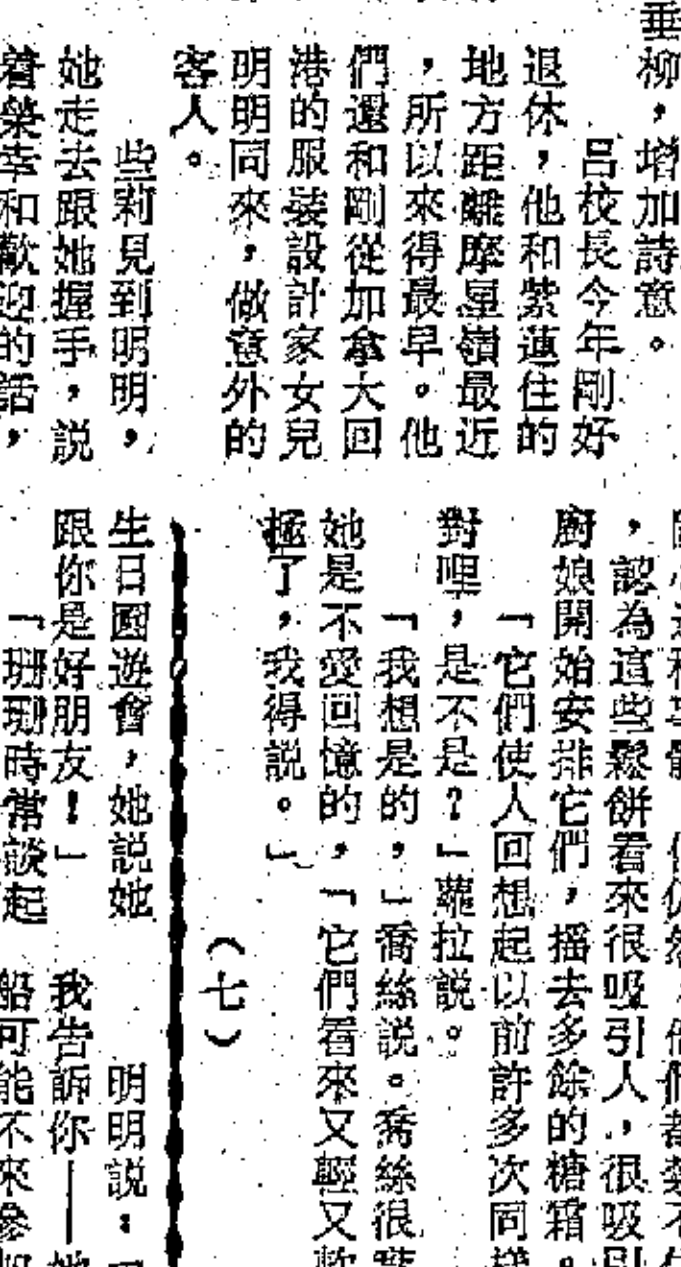 垂柳，增加詩意。
呂校長今年剛好
退休，他和紫蓮住的
地方距離摩星嶺最近
，所以來得最早。他
們還和剛從加拿大回
港的服裝設計家女兒
明明同來，做意外的
客人。
些莉見到明明，
她走去跟她握手，説
着榮幸和歡迎的話，
，認為這些鬆餅看來很吸引人，很吸引
廚娘開始安排它們，搖去多餘的糖霜。
「它們使人回想起以前許多次同樣
對哩，是不是？」蘿拉説。
「我想是的，」喬絲説。喬絲很
她是不愛回憶的，「它們看來又輕又軟
極了，我得説。」
（七）
生日園遊會，她説她
跟你是好朋友！」
「珊珊時常談起
明明説：「
我告訴你——她
船可能不來參加